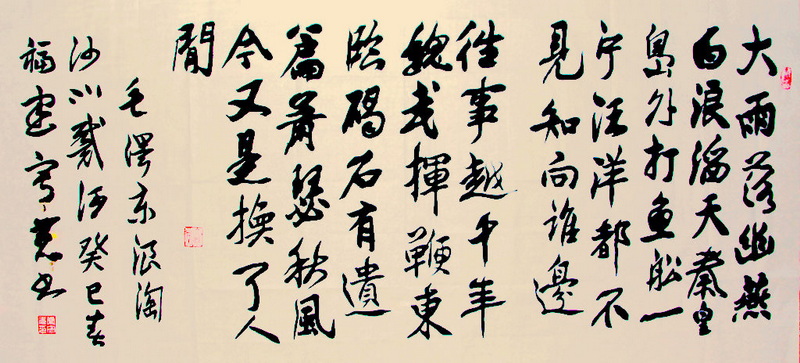 大雨落幽燕
白浪滔天秦皇
島外打魚船一
片汪洋都不
見知向誰邊
往事越千年
魏武揮鞭東
臨碣石有遺
篇蕭瑟秋風
今又是換了人
間
毛澤東浪淘
沙北戴河癸巳春
福建書